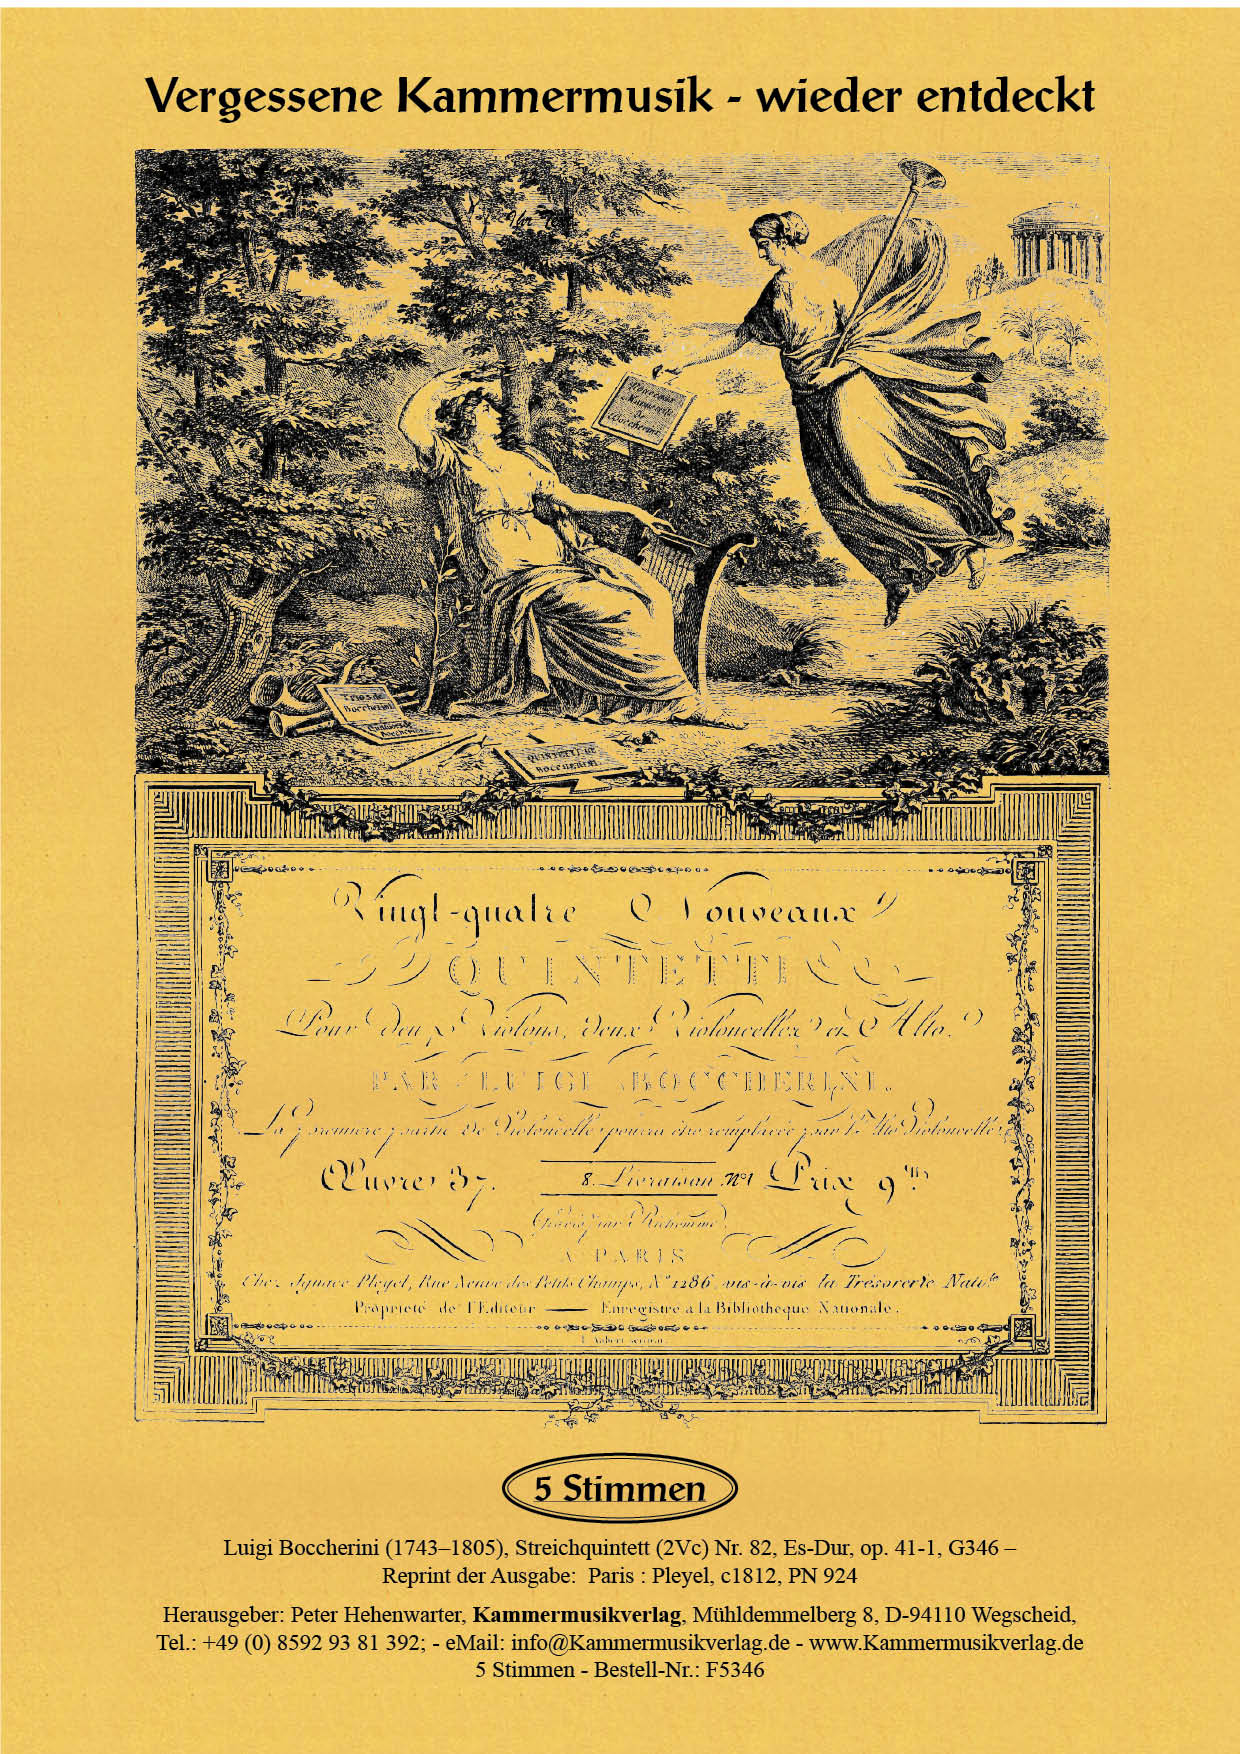 Vergessene Kammermusik - wieder entdeckt
Boccherini
Boccherini
QUINTETTI DE
BOCCHERINI
Vingt-quatre Nouveaux
QUINTETTI
Pour deux Violons, deux Violoncelles et Alto.
PAR LUIGI BOCCHERINI.
La premiere partie de Violoncelle pourra être remplacée par l'Alto Violoncelle
Œuvre 37. 8. Livraison. N°1 Prix 9
Gravés par Richomme
A PARIS
Chez Ignace Pleyel, Rue Neuve des Petits Champs, N° 1286, vis-à-vis la Trésorerie Nat
Propriété de l'Editeur — Enregistré a la Bibliotheque Nationale.
5 Stimmen
Luigi Boccherini (1743–1805), Streichquintett (2Vc) Nr. 82, Es-Dur, op. 41-1, G346 –
Reprint der Ausgabe: Paris : Pleyel, c1812, PN 924
Herausgeber: Peter Hehenwarter, Kammermusikverlag, Mühldemmelberg 8, D-94110 Wegscheid,
Tel.: +49 (0) 8592 93 81 392; - eMail: info@Kammermusikverlag.de - www.Kammermusikverlag.de
5 Stimmen - Bestell-Nr.: F5346